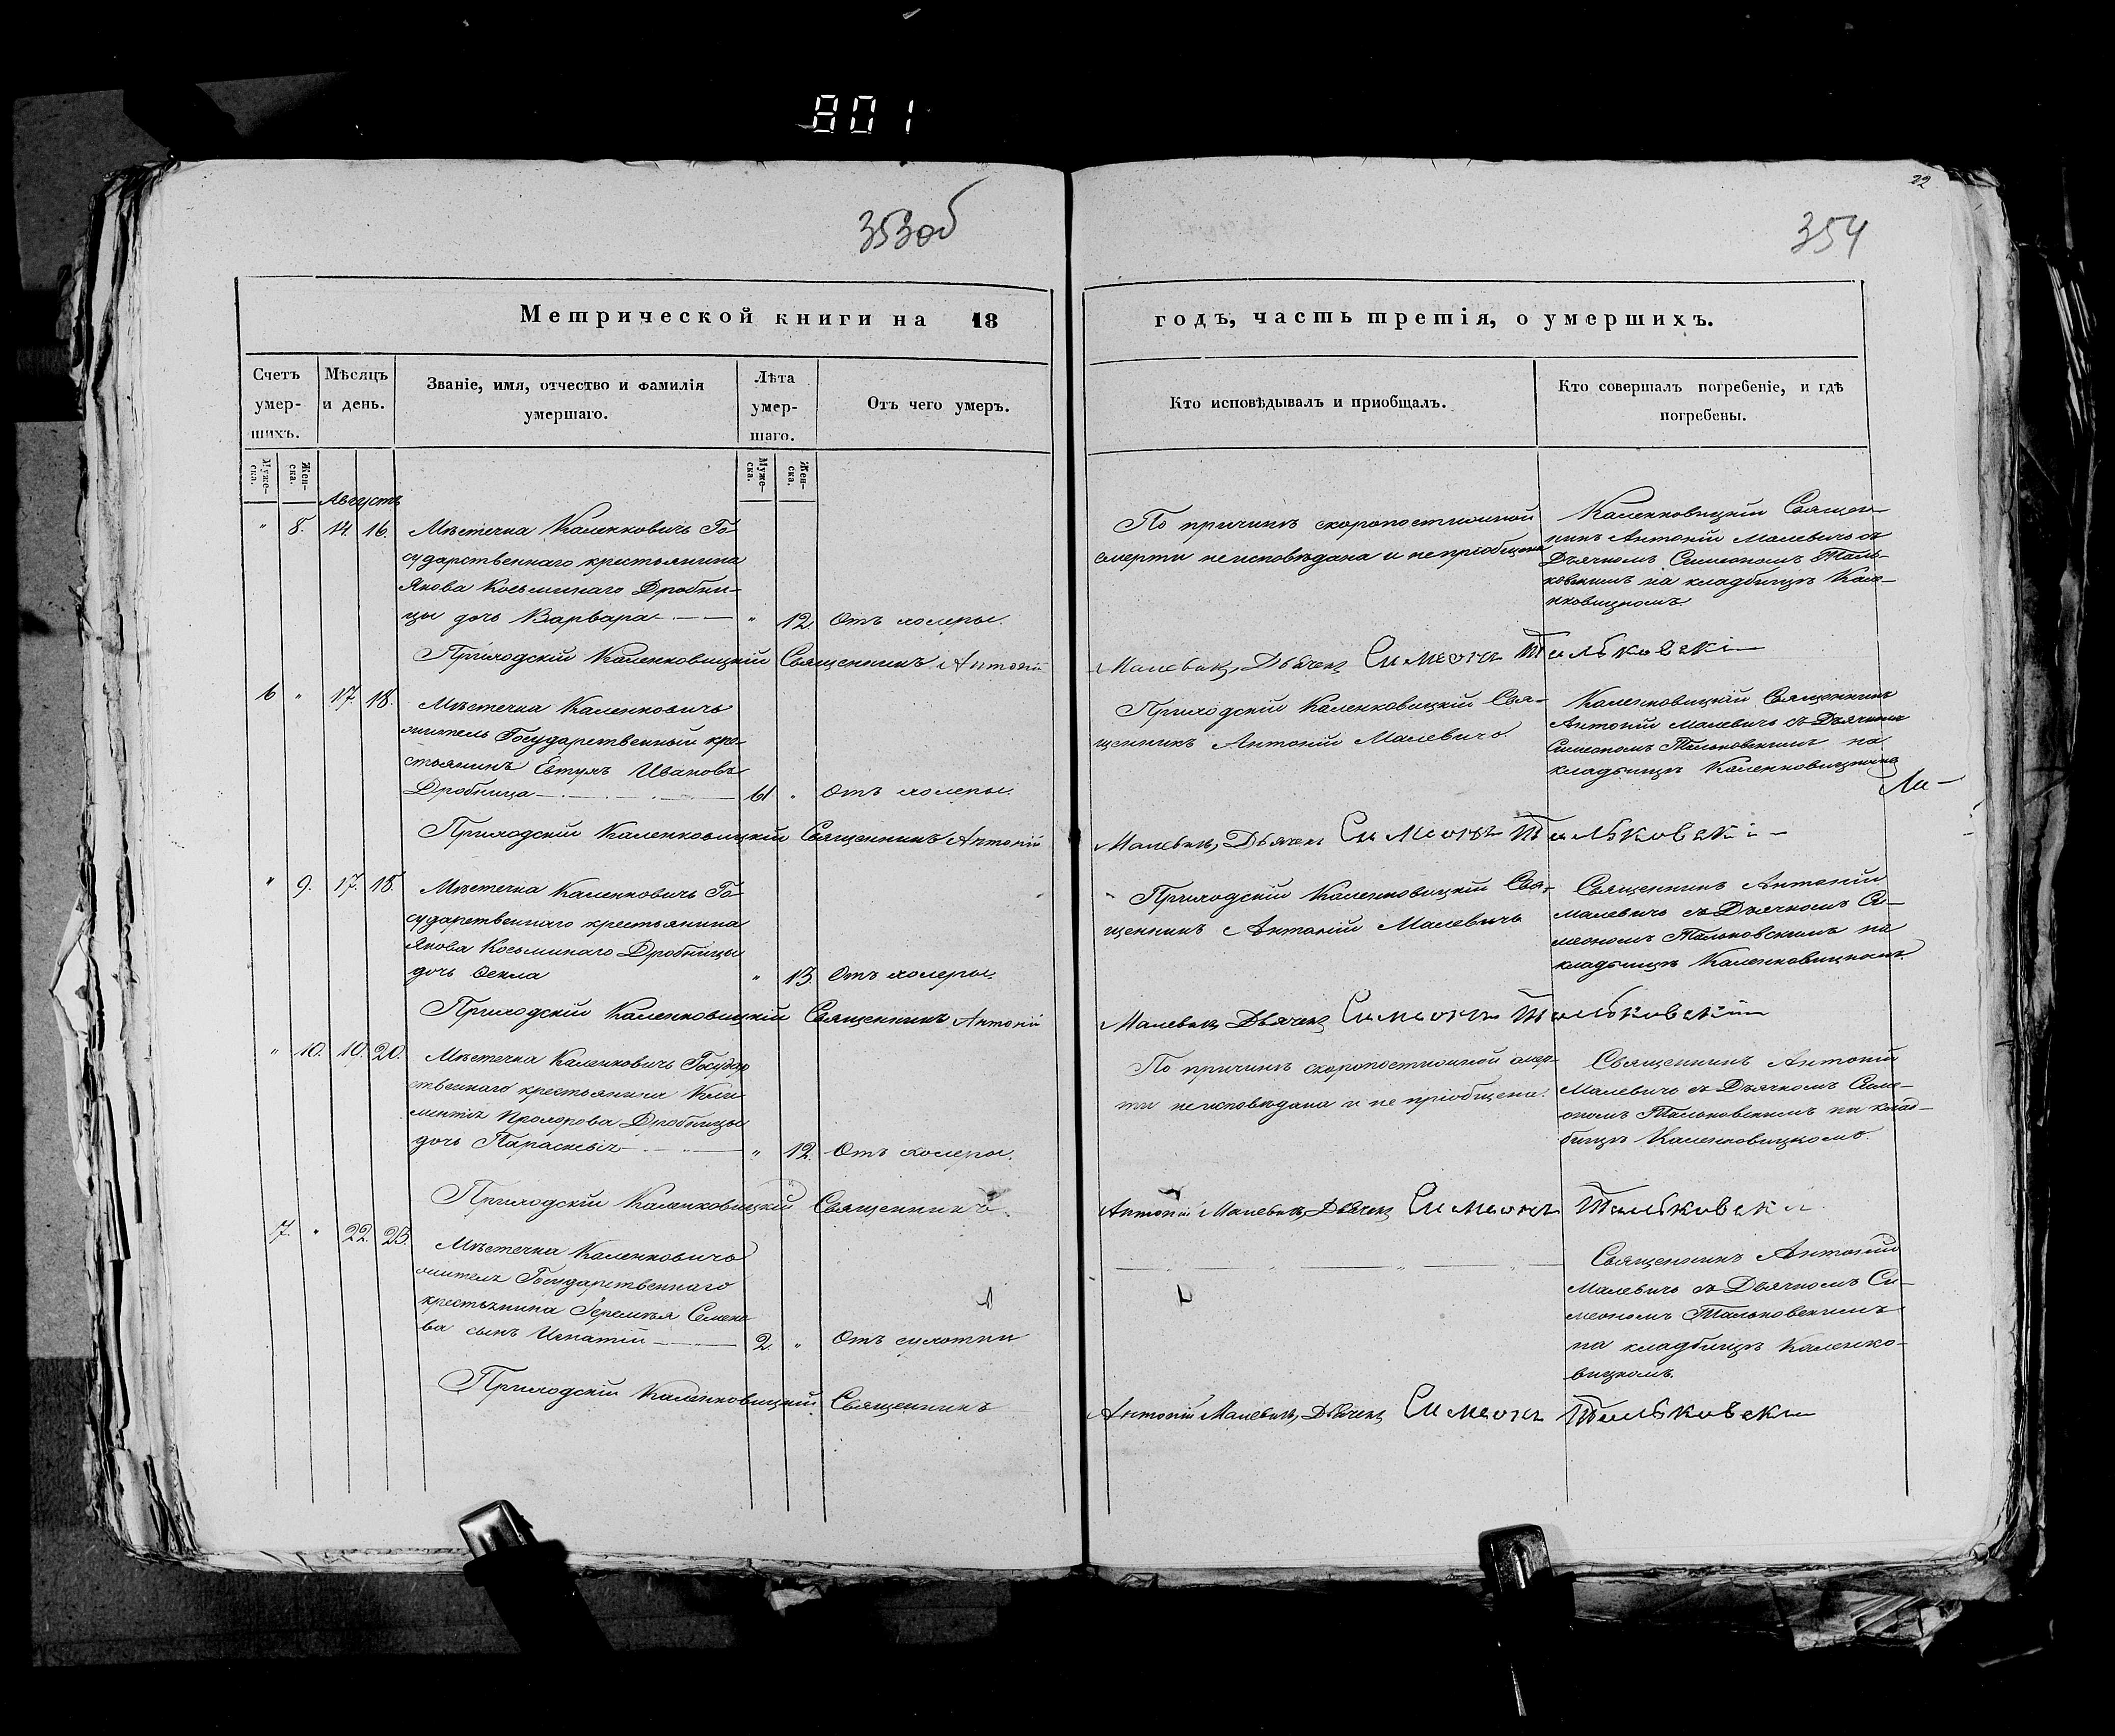 801
353об
22
354
Метрической книги на 18
годъ, часть третія, о умершихъ.
Счетъ умер-шихъ.
Мѣсяцъ и день.
Званіе, имя, отчество и фамилія умершаго.
Лѣта умер-шаго.
Отъ чего умеръ.
Кто исповѣдывалъ и приобщалъ.
Кто совершалъ погребеніе, и гдѣ погребены.
Муже-ска.
Жен-ска.
Муже-ска.
Жен-ска.
Августъ
" 8. 14. 16.
Мѣстечка Каленковичь Го-
сударственнаго крестьянина
Якова Косьминаго Дробни-
цы дочь Варвара " 12. Отъ холеры.
По причинѣ скоропостижной
смерти не исповѣдана и не пріобщена
Каленковицкій Священ-
никъ Антоній Малевичь съ
Дьячкомъ Симеономъ Таль-
ковскимъ на кладбищѣ Кале-
нковицкомъ.
Приходскій Каленковицкій Священникъ Антоній
Малевичь, Дьячекъ Симеонъ Тальковскій
6 " 17. 18.
Мѣстечка Каленковичь
житель Государственный кре-
стьянинъ Евтухъ Ивановъ
Дробница 61 " Отъ холеры.
Приходскій Каленковицкій Свя-
щенникъ Антоній Малевичь.
Каленковицкій Священникъ
Антоній Малевичь съ Дьячкомъ
Симеономъ Тальковскимъ на
кладбищѣ Каленковицкомъ
Ма-
Приходскій Каленковицкій Священникъ Антоній
Малевичь, Дьячекъ Симеонъ Тальковскі
" 9. 17. 18.
Мѣстечка Каленковичь Го-
сударственнаго крестьянина
Якова Косьминаго Дробницы
дочь Ѳекла " 13. Отъ холеры.
Приходскій Каленковицкій Свя-
щенникъ Антоній Малевичь
Священникъ Антоній
Малевичь съ Дьячкомъ Си-
меономъ Тальковскимъ на
кладбищѣ Каленковицкомъ.
Приходскій Каленковицкій Священникъ Антоній
Малевичь Дьячекъ Симеонъ Тальковскій
" 10. 20.
Мѣстечка Каленковичь Государ
ственнаго крестьянина Кли
ментія Прохорова Дробницы
дочь Параскевія " 12. Отъ холеры.
По причинѣ скоропостижной смер-
ти не исповѣдана и не пріобщена.
Священникъ Антоній
Малевичь съ Дьячкомъ Симе-
ономъ Тальковскимъ на клад-
бищѣ Каленковицкомъ.
Приходскій Каленковицкій Священникъ
Антоній Малевичь, Дьячекъ Симеонъ Тальковскі
7. " 22. 23.
Мѣстечка Каленковичь
жителя Государственнаго
крестьянина Іеремѣя Семено
ва сынъ Игнатій 2 " Отъ сухотки
Священникъ Антоній
Малевичь съ Дьячкомъ Си-
меономъ Тальковскимъ
на кладбищѣ Каленко-
вицкомъ.
Приходскій Каленковицкій Священникъ
Антоній Малевичь, Дьячекъ Симеонъ Тальковскі